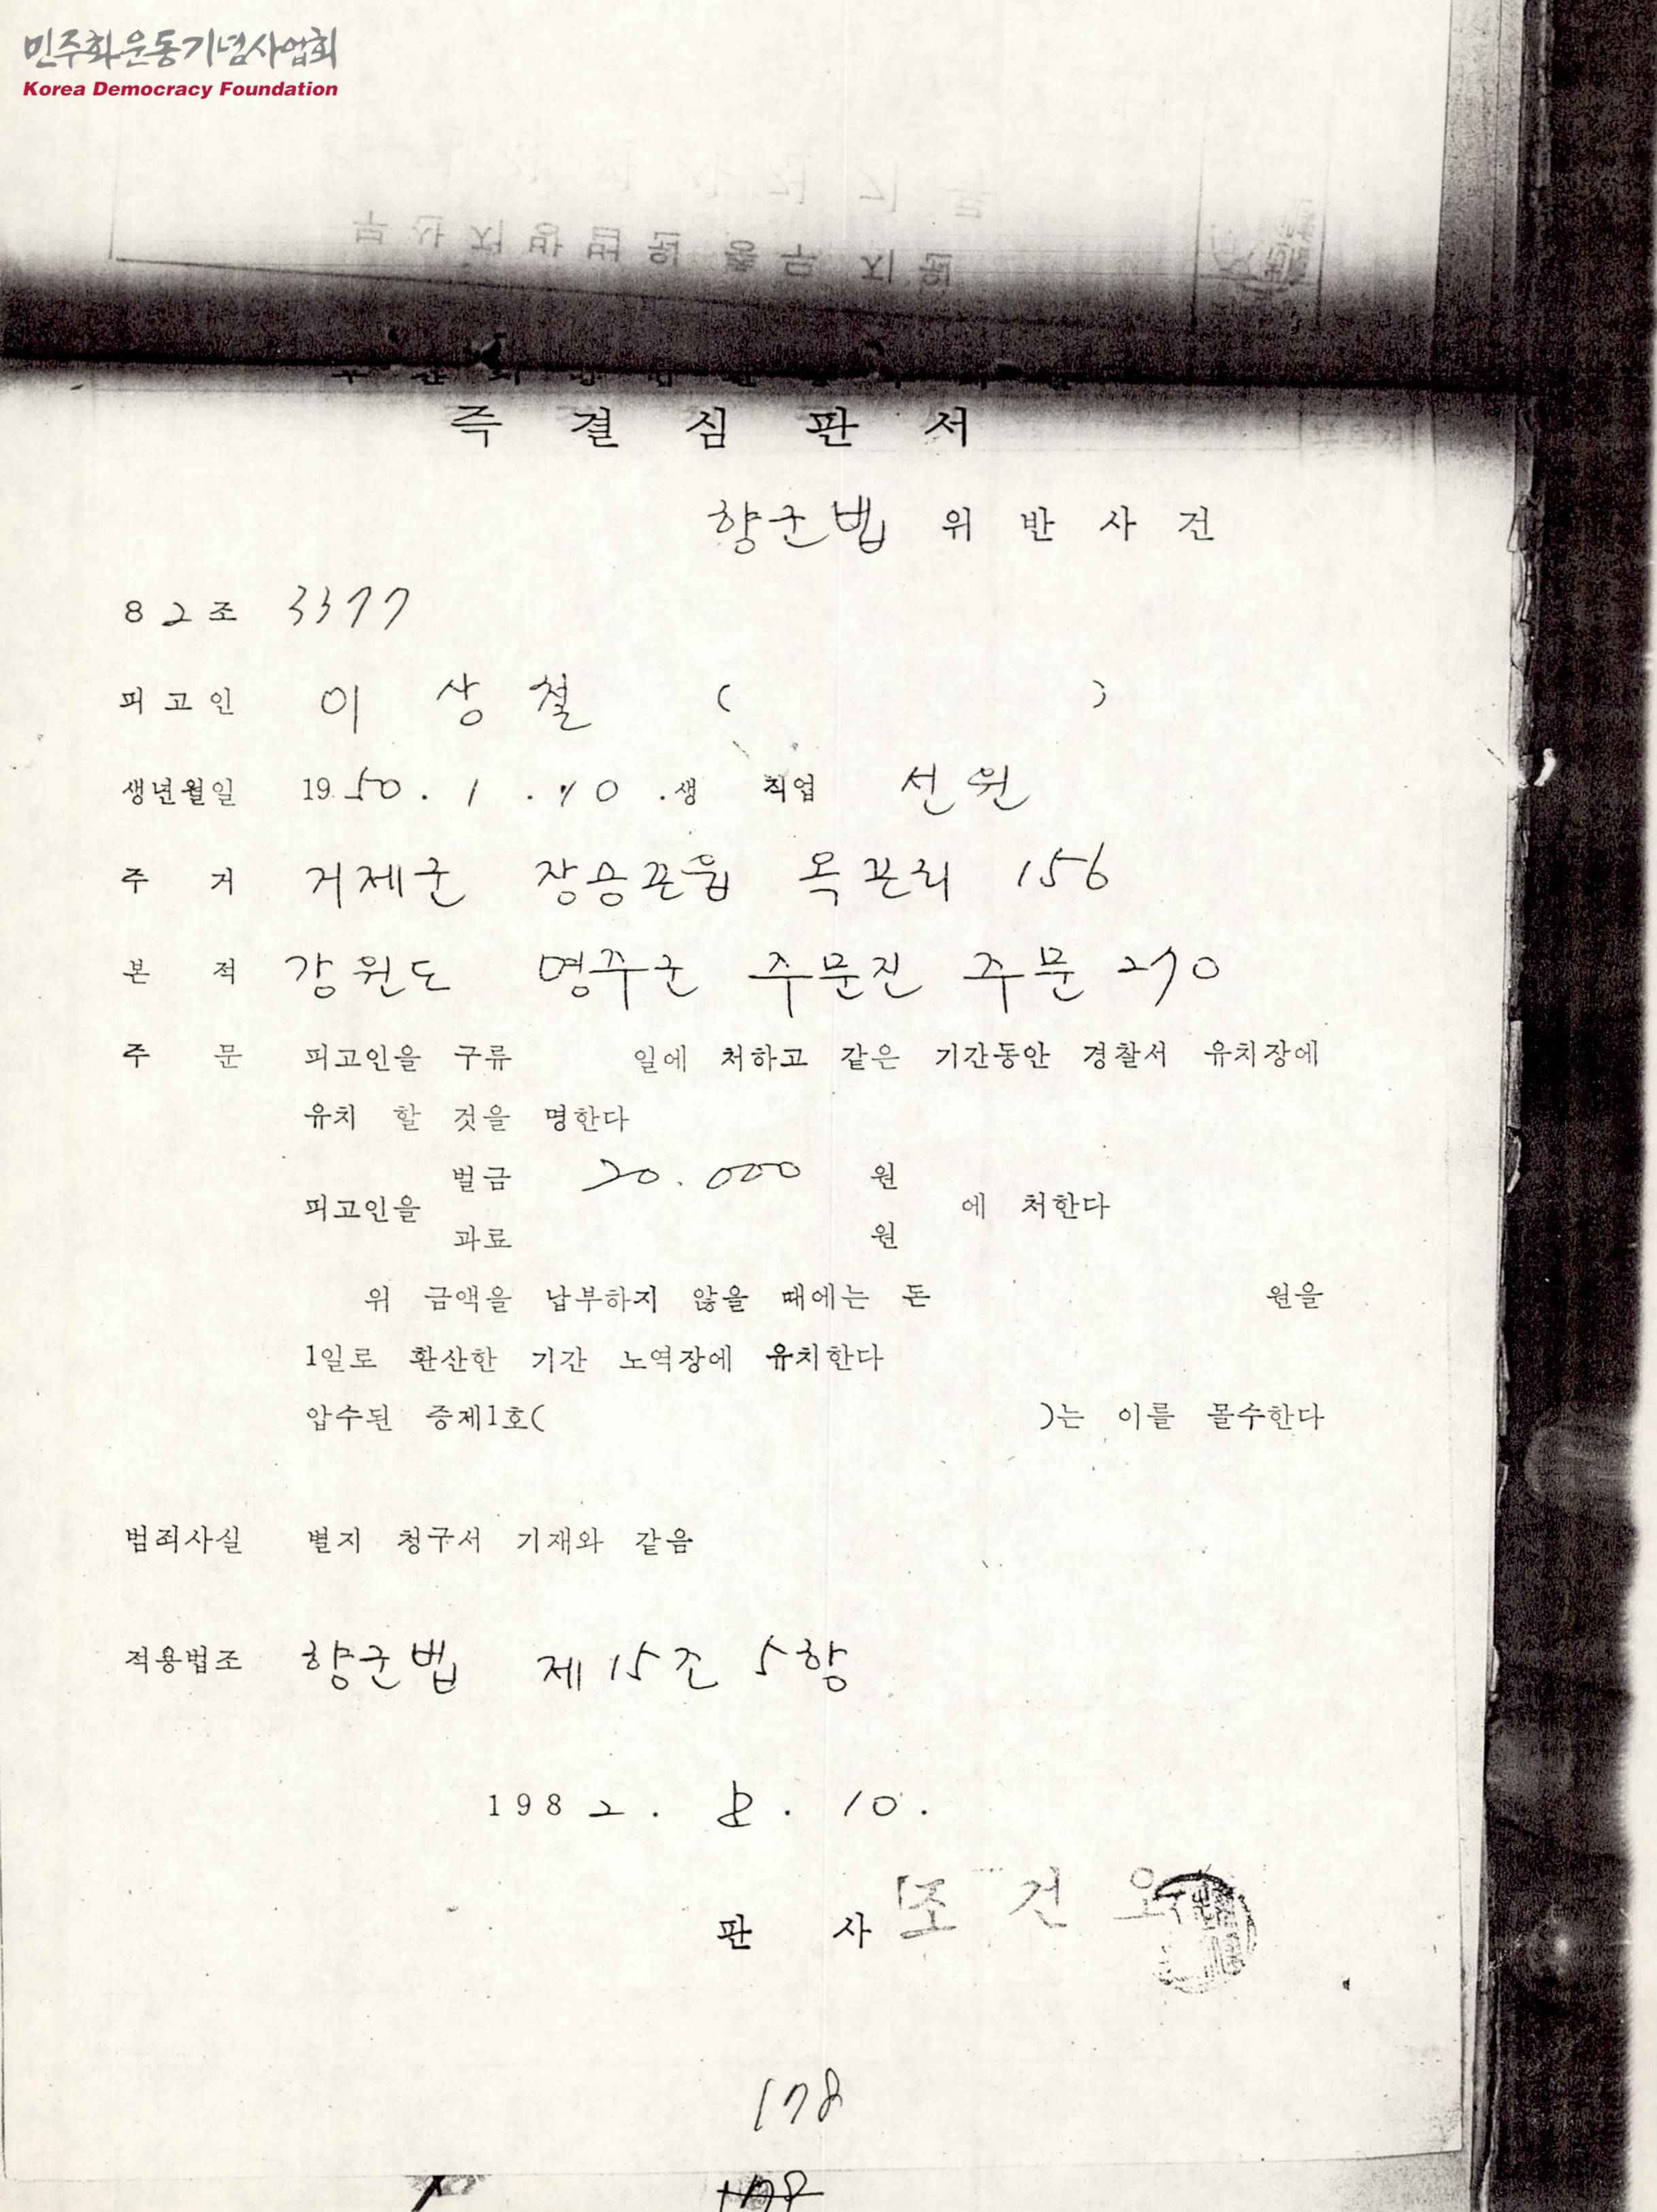 민주화운동기념사업회
Korea Democracy Foundation
부산지방법원충무지원
즉결심판서
향군법 위반사건
82조 3377
피고인 이상철 ( )
생년월일 1950. 1. 10.생 직업 선원
주거 거제군 장승포읍 옥포리 156
본적 강원도 명주군 주문진 주문 270
주문 피고인을 구류 일에 처하고 같은 기간동안 경찰서 유치장에
유치 할 것을 명한다
벌금 20.000 원
피고인을 에 처한다
과료 원
위 금액을 납부하지 않을 때에는 돈 원을
1일로 환산한 기간 노역장에 유치한다
압수된 증제1호( )는 이를 몰수한다
범죄사실 별지 청구서 기재와 같음
적용법조 향군법 제15조 5항
1982. 8. 10.
판사 조건오
178
178